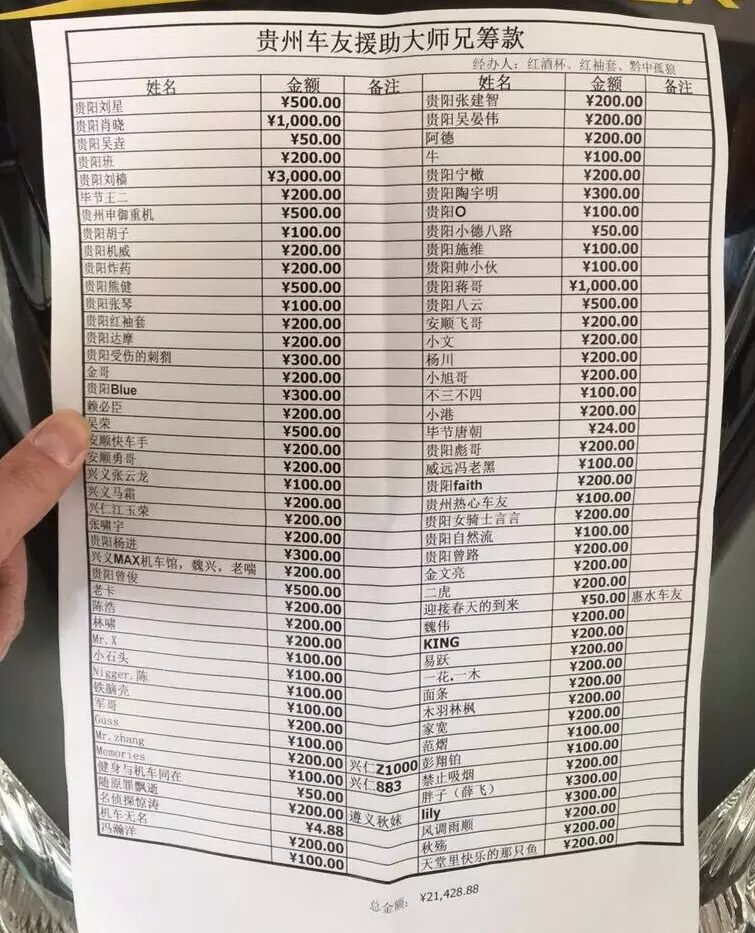 贵州车友援助大师兄筹款
经办人：红酒杯、红袖套、黔中孤狼
姓名 金额 备注 姓名 金额 备注
贵阳刘星 ¥500.00 贵阳张建智 ¥200.00
贵阳肖晓 ¥1,000.00 贵阳吴晏伟 ¥200.00
贵阳吴垚 ¥50.00 阿德 ¥200.00
贵阳班 ¥200.00 牛 ¥100.00
贵阳刘楠 ¥3,000.00 贵阳宁橄 ¥200.00
毕节王二 ¥200.00 贵阳陶宇明 ¥300.00
贵州申御重机 ¥500.00 贵阳O ¥100.00
贵阳胡子 ¥100.00 贵阳小德八路 ¥50.00
贵阳机威 ¥200.00 贵阳施维 ¥100.00
贵阳炸药 ¥200.00 贵阳帅小伙 ¥100.00
贵阳熊健 ¥500.00 贵阳蒋哥 ¥1,000.00
贵阳张琴 ¥100.00 贵阳八云 ¥500.00
贵阳红袖套 ¥200.00 安顺飞哥 ¥200.00
贵阳达摩 ¥200.00 小文 ¥200.00
贵阳受伤的刺猬 ¥300.00 杨川 ¥200.00
金哥 ¥200.00 小旭哥 ¥200.00
贵阳Blue ¥300.00 不三不四 ¥100.00
赖必臣 ¥200.00 小港 ¥200.00
吴荣 ¥500.00 毕节唐朝 ¥24.00
安顺快车手 ¥200.00 贵阳彪哥 ¥200.00
安顺勇哥 ¥200.00 威远冯老黑 ¥100.00
兴义张云龙 ¥100.00 贵阳faith ¥200.00
兴义马霜 ¥200.00 贵州热心车友 ¥100.00
兴仁江玉荣 ¥200.00 贵阳女骑士言言 ¥200.00
张啸宇 ¥200.00 贵阳自然流 ¥100.00
贵阳杨进 ¥300.00 贵阳曾路 ¥200.00
兴义MAX机车馆，魏兴，老喘 ¥200.00 金文亮 ¥200.00
贵阳曾俊 ¥500.00 二虎 ¥200.00
老卡 ¥200.00 迎接春天的到来 ¥50.00 惠水车友
陈浩 ¥200.00 魏伟 ¥200.00
林啸 ¥200.00 KING ¥200.00
Mr.X ¥100.00 易跃 ¥200.00
小石头 ¥100.00 一花.一木 ¥200.00
Nigger.陈 ¥100.00 面条 ¥200.00
铁脑壳 ¥100.00 木羽林枫 ¥200.00
军哥 ¥200.00 家宽 ¥100.00
Guss ¥100.00 范熠 ¥100.00
Mr.zhang ¥200.00 兴仁Z1000 彭翔铂 ¥200.00
Memories ¥100.00 兴仁883 禁止吸烟 ¥300.00
健身与机车同在 ¥50.00 胖子（薛飞） ¥300.00
随原罪飘逝 ¥200.00 遵义秋妹 lily ¥200.00
名侦探惊涛 ¥4.88 风调雨顺 ¥200.00
机车无名 ¥200.00 秋殇 ¥200.00
冯瀚洋 ¥100.00 天堂里快乐的那只鱼 ¥200.00
总金额： ¥21,428.88